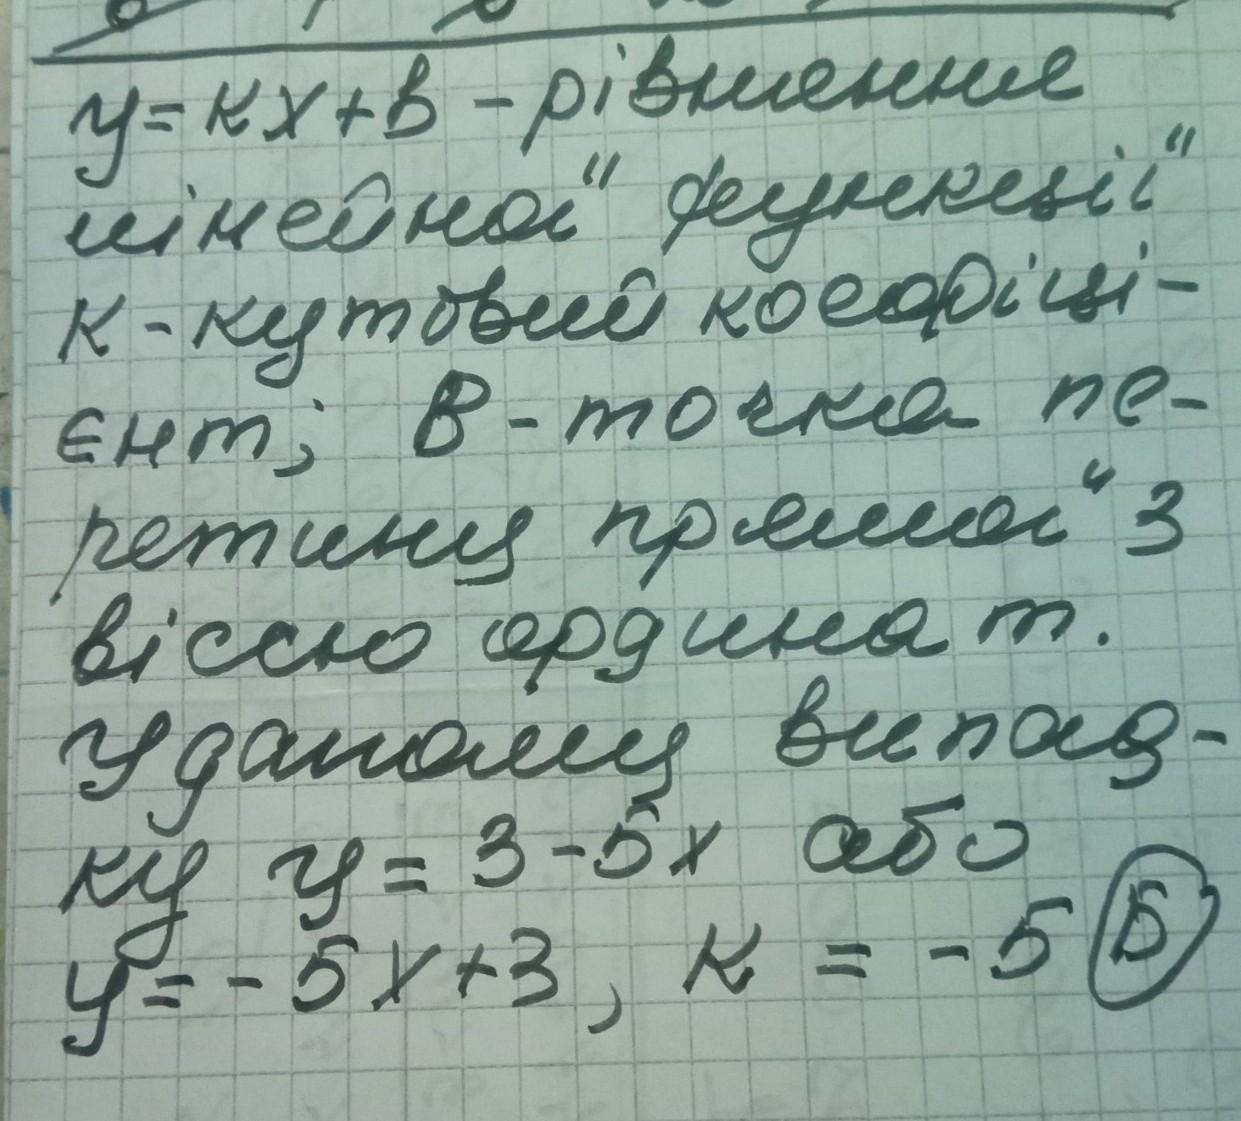 у=кх+в - рівняння
лінейної функції
к - кутовий коефіці-
єнт; В - точка пе-
ретину прямої з
віссю ординат.
У даному випад-
ку у = 3 - 5х або
у = - 5х + 3, к = - 5 Б